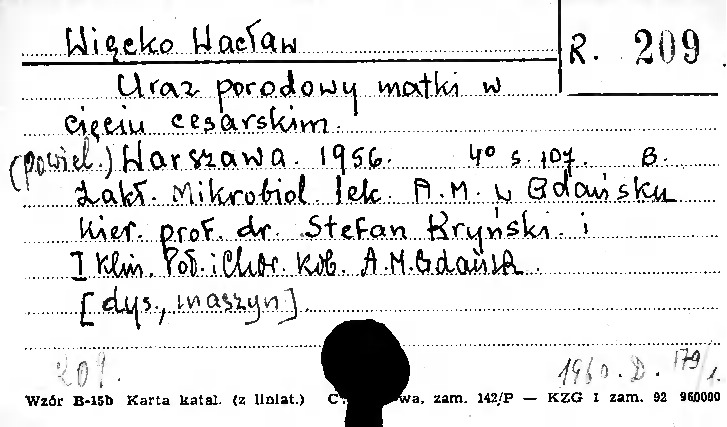 Więcko Wacław
R. 209
Uraz porodowy matki w
cięciu cesarskim.
(powiel.) Warszawa. 1956. 4° s. 107. B.
Zakł. Mikrobiol. lek. A.M. w Gdańsku
kier. prof. dr. Stefan Kryński i
I Klin. Poł. i Chor. Kob. A.M. Gdańsk.
[dys., maszyn]
209. 1960. D. 179/1.
Wzór B-15b Karta katal. (z liniat.) wa, zam. 142/P — KZG I zam. 92 960000